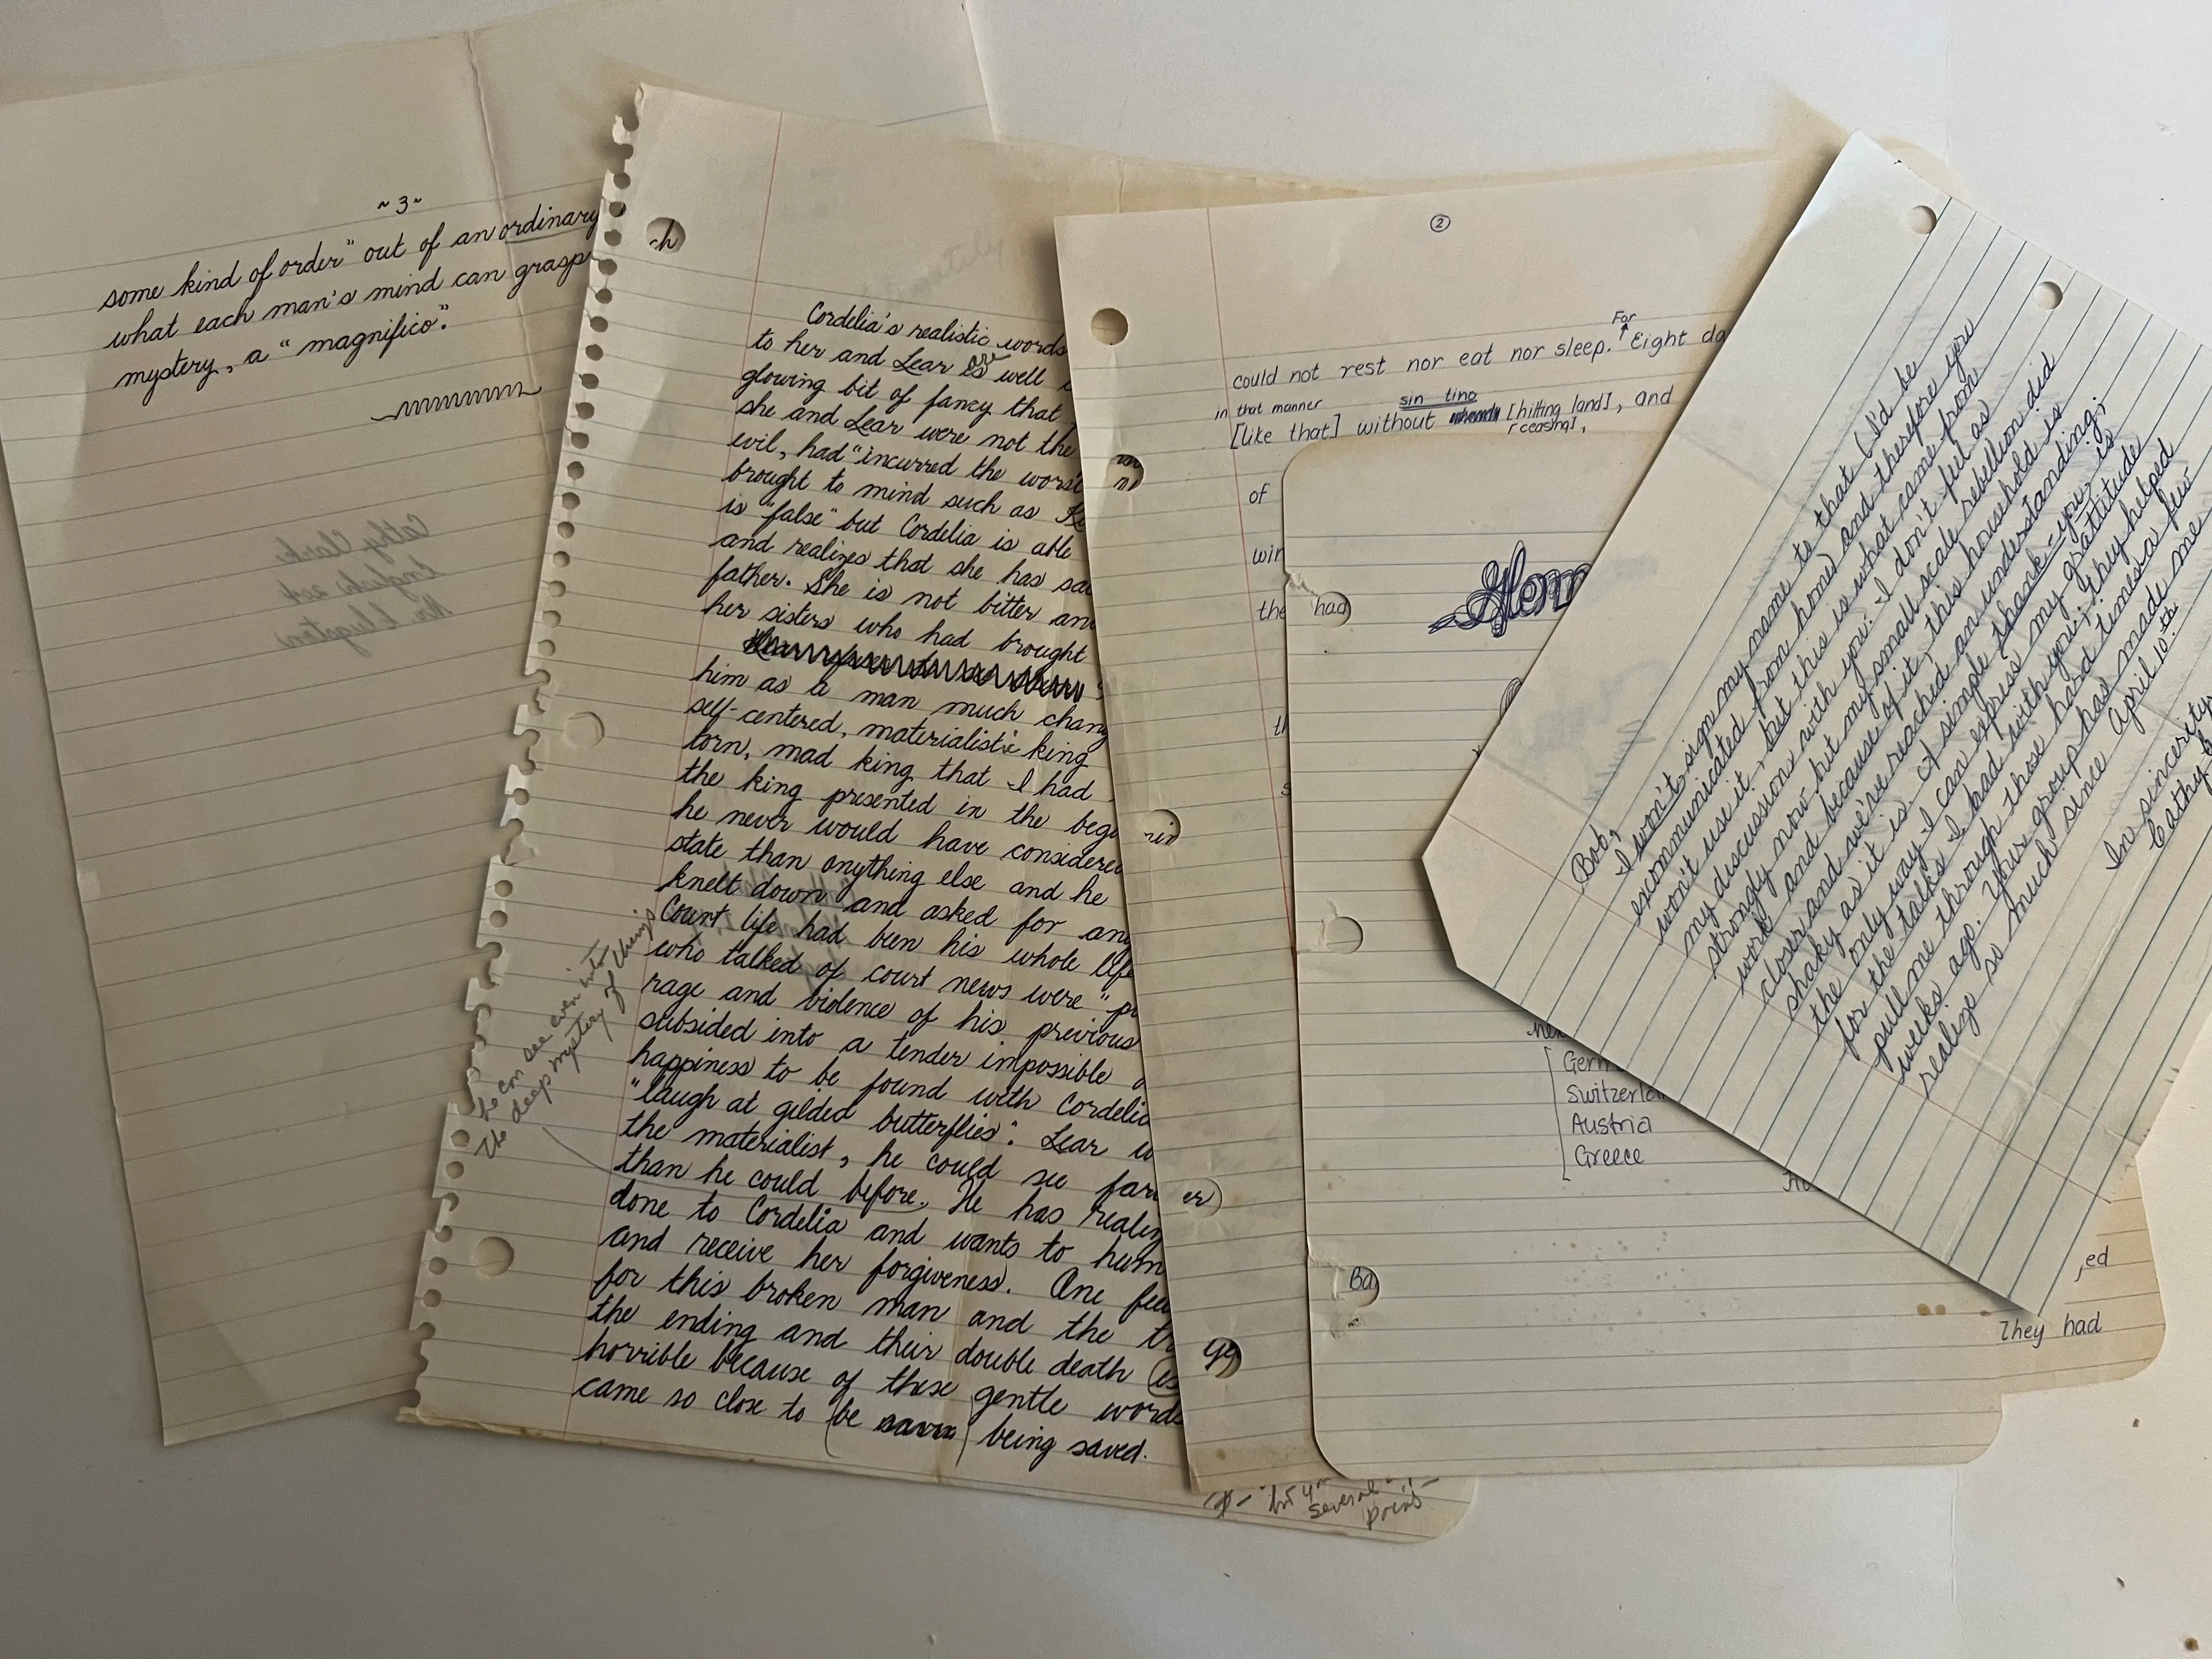 ~3~
some kind of order" out of an ordinary
what each man's mind can grasp
mystery, a "magnifico".
Cathy Clarke
English 204
ch
Cordelia's realistic words
to her and Lear is are well
glowing bit of fancy that
she and Lear were not the
evil, had "incurred the worst
brought to mind such as
is "false" but Cordelia is able
and realizes that she has
father. She is not bitter
her sisters who had brought
him as a man much chang
self-centered, materialistic king
torn, mad king that I had
the king presented in the beg
he never would have considered
state than anything else and he
knelt down and asked for
Court life had been his whole life
who talked of court news were "p
rage and violence of his previous
subsided into a tender impossible
happiness to be found with Cordelia
"laugh at gilded butterflies". Lear
the materialist, he could see far
than he could before. He has realiz
done to Cordelia and wants to hum
and receive her forgiveness. One fee
for this broken man and the
the ending and their double death
horrible because of these gentle words
came so close to (be being saved.
he can see even into
the deep mystery of things
②
For
could not rest nor eat nor sleep. Eight da
in that manner sin tino
[like that] without [hitting land], and
[ceasing],
of
win
the
had
er)
Ba
Hom
Germ
Switzerlan
Austria
Greece
ed
They had
several
Bob,
I won't sign my name to that (I'd be
excommunicated from home) and therefore you
won't use it, but this is what came from
my discussion with you. I don't feel as
strongly now but my small scale rebellion did
work and because of it, this household is
closer and we've reached an understanding;
shaky as it is. A simple thank-you is
the only way I can express my gratitude
for the talks I had with you; they helped
pull me through those hard times a few
weeks ago. Your group has made me
realize so much since April 10th.
In sincerity,
Cathy